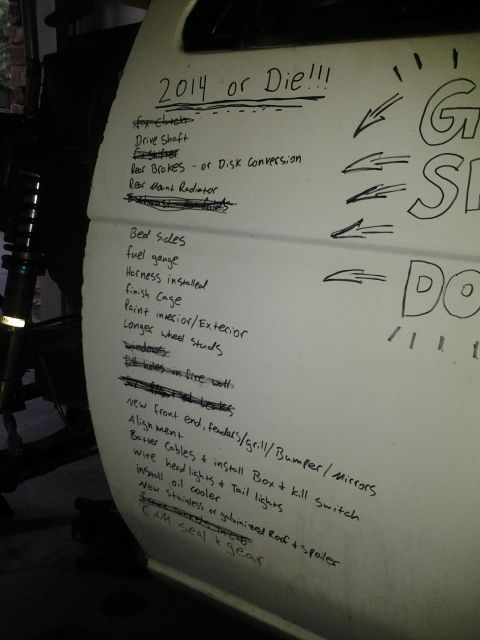 2014 or Die!!!
fix clutch
Drive Shaft
Rear Brakes - or Disk Conversion
Rear Mount Radiator
Exhaust Manifolds
Bed sides
fuel gauge
Harness installed
finish Cage
Paint interior/Exterior
Longer wheel studs
windows
fill holes in fire wall
New front end, fenders/grill/Bumper/Mirrors
Alignment
Batter Cables + install Box + kill switch
wire head lights + Tail lights
install oil cooler
New stainless or galvinized Roof + spoiler
CAM seal + gear
G
S
DO